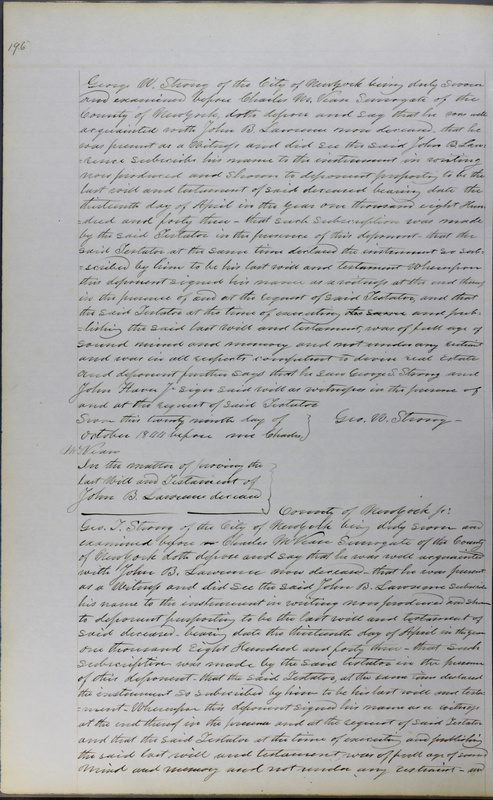 196
George W. Strong of the City of New York being duly sworn
and examined before Charles McVean Surrogate of the
County of New York, doth depose and say that he was well
acquainted with John B. Lawrence now deceased, that he
was present as a Witness and did see the said John B. Law
-rence subscribe his name to the instrument in writing
now produced and shown to deponent purporting to be the
last will and testament of said deceased bearing date the
thirteenth day of April in the year one thousand eight Hun
dred and forty three - that such subscription was made
by the said Testator in the presence of this deponent - that the
said Testator at the same time declared the instrument so sub-
-scribed by him to be his last will and testament Whereupon
this deponent signed his name as a witness at the end thereof
in the presence of and at the request of said Testator, and that
the said Testator at the time of executing the same and pub-
-lishing the said last will and testament, was of full age of
sound mind and memory and not under any restraint
and was in all respects competent to devise real estate
and deponent further says that he saw George T. Strong and
John Jr. sign said will as witnesses in the presence of
and at the request of said Testator
Sworn this twenty day of } Geo. W. Strong -
October 1844 before me Charles }
McVean
In the matter of proving the }
last Will and Testament of }
John B. Lawrence deceased }
County of New York ss:
Geo. T. Strong of the City of New York being duly sworn and
examined before Charles McVean Surrogate of the County
of New York doth depose and say that he was well acquainted
with John B. Lawrence now deceased - that he was present
as a Witness and did see the said John B. Lawrence subscribe
his name to the instrument in writing now produced and shown
to deponent purporting to be the last will and testament of
said deceased - bearing date the thirteenth day of April in the year
one thousand Eight Hundred and forty three - that such
subscription was made by the said testator in the presence
of this deponent - that the said Testator, at the same time declared
the instrument so subscribed by him to be his last will and testa
-ment - Whereupon this deponent signed his name as a witness
at the end thereof in the presence and at the request of said Testator
and that the said Testator at the time of executing and publishing
the said last will and testament was of full age of sound
mind and memory and not under any restraint - and